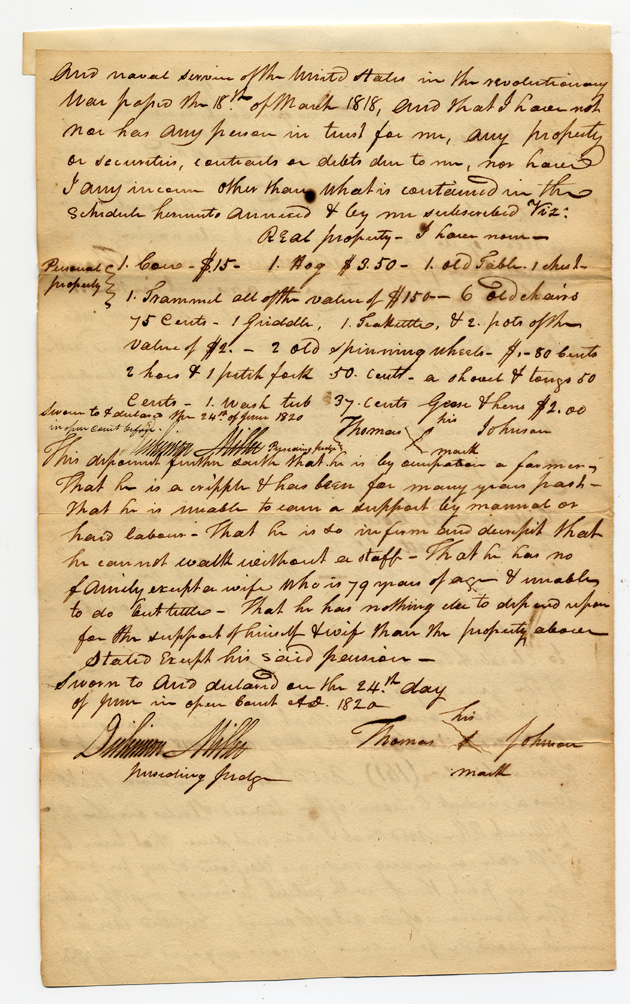 And naval service of the United States in the revolutionary
War passed the 18.th of March 1818, and that I have not
nor has any person in trust for me, any property
or securities, contracts or debts due to me, nor have
I any income other than what is contained in the
Schedule hereunto annexed & by me subscribed Viz:
Real property - I have none -
Personal property
1. Cow - $15 - 1. Hog $3.50 - 1. old Table. 1 chest -
1. Trammel all of the value of $1.50 - 6 old chairs
75 Cents - 1 Griddle, 1. Teakettle, & 2. pots of the
value of $2. - 2 old spinning wheels - $. - 80 Cents
2 hoes & 1 pitch fork 50. cents - a shovel & tongs 50
Cents - 1. wash tub 37. cents Geese & hens $2.00
Sworn to & declared the 24th of June 1820
in open Court before.
Dickinson Miller Presiding Judge
Thomas his Johnson
mark
This deponent further saith that he is by occupation a farmer -
That he is a cripple & has been for many years past -
that he is unable to earn a support by manual or
hard labour - That he is so infirm and decrepit that
he cannot walk without a staff - That he has no
family except a wife who is 79 years of age & unable
to do but little - That he has nothing else to depend upon
for the support of himself & wife than the property above
Stated Except his said pension -
Sworn to And declared on the 24.th day
of June in open Court A.D. 1820
Dickinson Miller
presiding Judge
Thomas his Johnson
mark